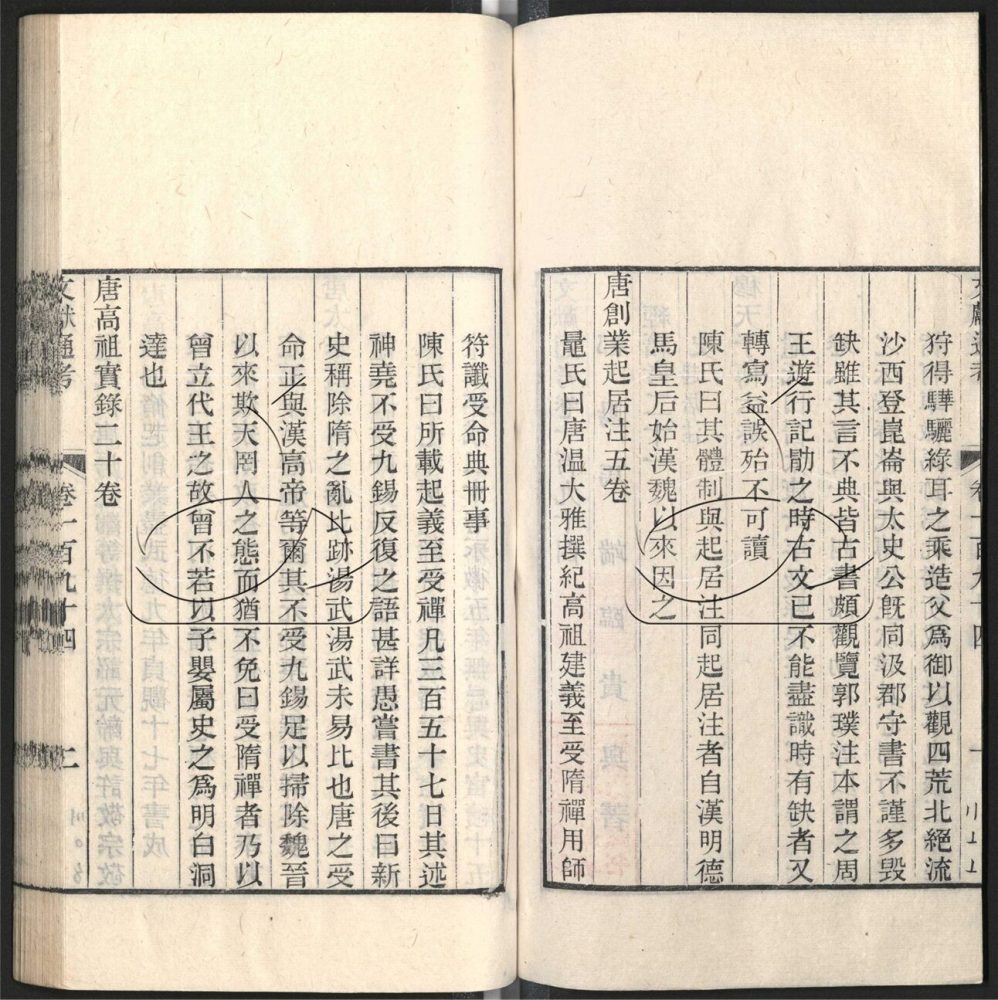 狩得驊驪綠耳之乘造父爲御以觀四荒北絕流
沙西登崑崙與太史公旣同汲郡守書不謹多毀
缺雖其言不典皆古書頗觀覽郭璞注本謂之周
王遊行記勛之時古文已不能盡識時有缺者又
轉寫益誤殆不可讀
陳氏曰其體制與起居注同起居注者自漢明德
馬皇后始漢魏以來因之
唐創業起居注五卷
鼂氏曰唐温大雅撰紀高祖建義至受隋禪用師
符讖受命典冊事
陳氏曰所載起義至受禪凡三百五十七日其述
神堯不受九錫反復之語甚詳愚嘗書其後曰新
史稱除隋之亂比跡湯武湯武未易比也唐之受
命正與漢高帝等爾其不受九錫足以掃除魏晉
以來欺天罔人之態而猶不免曰受隋禪者乃以
曾立代王之故曾不若以子嬰屬史之爲明白洞
達也
唐高祖實錄二十卷
文獻通考 卷一百九十四 二